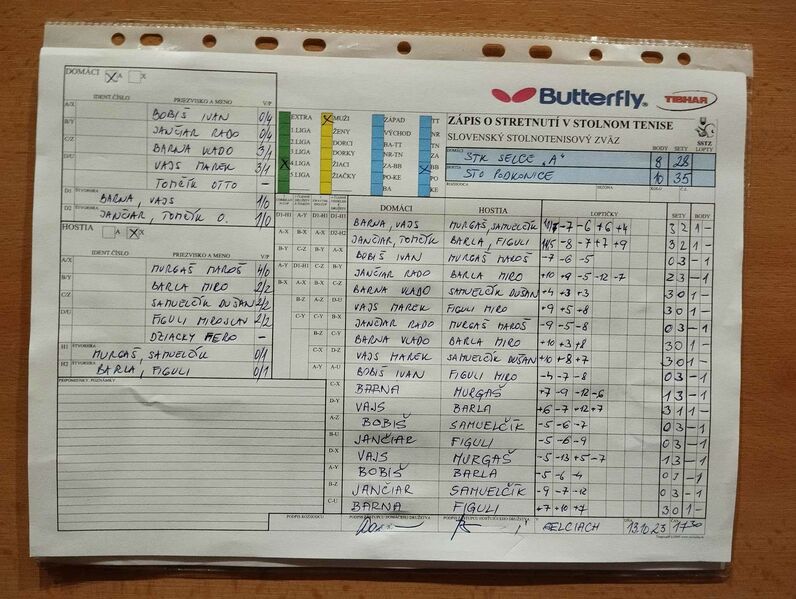 DOMÁCI X A X
IDENT.ČÍSLO PRIEZVISKO A MENO V/P
A/X BOBIŠ IVAN 0/4
B/Y JANČIAR RADO 0/4
C/Z BARNA VLADO 3/1
D/U VAJS MAREK 3/1
TOMČÍK OTTO –
D1 ŠTVORHRA BARNA, VAJS 1/0
D2 ŠTVORHRA JANČIAR, TOMČÍK O. 1/0
HOSTIA A X X
IDENT.ČÍSLO PRIEZVISKO A MENO V/P
A/X MURGAŠ MAROŠ 4/0
B/Y BARLA MIRO 2/2
C/Z SAMUELČÍK DUŠAN 2/2
D/U FIGULI MIROSLAV 2/2
DZIACKY FERO –
H1 ŠTVORHRA MURGAŠ, SAMUELČÍK 0/1
H2 ŠTVORHRA BARLA, FIGULI 0/1
PRIPOMIENKY, POZNÁMKY
EXTRA X MUŽI ZÁPAD TT
1.LIGA ŽENY VÝCHOD NR
2.LIGA DORCI BA-TT TN
3.LIGA DORKY NR-TN ZA
X 4.LIGA ŽIACI ZA-BB X BB
5.LIGA ŽIAČKY PO-KE PO
BA KE
Butterfly
TIBHAR
ZÁPIS O STRETNUTÍ V STOLNOM TENISE
SLOVENSKÝ STOLNOTENISOVÝ ZVÄZ
SSTZ
BODY SETY LOPTY
DOMÁCI STK SELCE "A" 8 28
HOSTIA STO PODKONICE 10 35
ROZHODCA SEZÓNA KOLO
DOMÁCI HOSTIA LOPTIČKY SETY BODY
BARNA, VAJS MURGAŠ, SAMUELČÍK -7 -6 +6 +4 3 2 1 –
JANČIAR, TOMČÍK BARLA, FIGULI -8 -7 +7 +9 3 2 1 –
BOBIŠ IVAN MURGAŠ MAROŠ -7 -6 -5 0 3 – 1
JANČIAR RADO BARLA MIRO +10 +9 -5 -12 -7 2 3 – 1
BARNA VLADO SAMUELČÍK DUŠAN +4 +3 +3 3 0 1 –
VAJS MAREK FIGULI MIRO +9 +5 +8 3 0 1 –
JANČIAR RADO MURGAŠ MAROŠ -9 -5 -8 0 3 – 1
BARNA VLADO BARLA MIRO +10 +3 +8 3 0 1 –
VAJS MAREK SAMUELČÍK DUŠAN +10 +8 +7 3 0 1 –
BOBIŠ IVAN FIGULI MIRO -4 -7 -8 0 3 – 1
C-X BARNA MURGAŠ +7 -9 -12 -6 1 3 – 1
D-Y VAJS BARLA +6 -7 +12 +7 3 1 1 –
A-Z BOBIŠ SAMUELČÍK -5 -6 -7 0 3 – 1
B-U JANČIAR FIGULI -5 -6 -9 0 3 – 1
D-X VAJS MURGAŠ -5 -13 +5 -7 1 3 – 1
A-Y BOBIŠ BARLA -5 -6 -4 0 3 – 1
B-Z JANČIAR SAMUELČÍK -9 -7 -12 0 3 – 1
C-U BARNA FIGULI +7 +10 +7 3 0 1 –
PODPIS ROZHODCU PODPIS ZÁSTUPCU DOMÁCEHO DRUŽSTVA PODPIS ZÁSTUPCU HOSŤUJÚCEHO DRUŽSTVA V SELCIACH DŇA 13.10.23 17.30